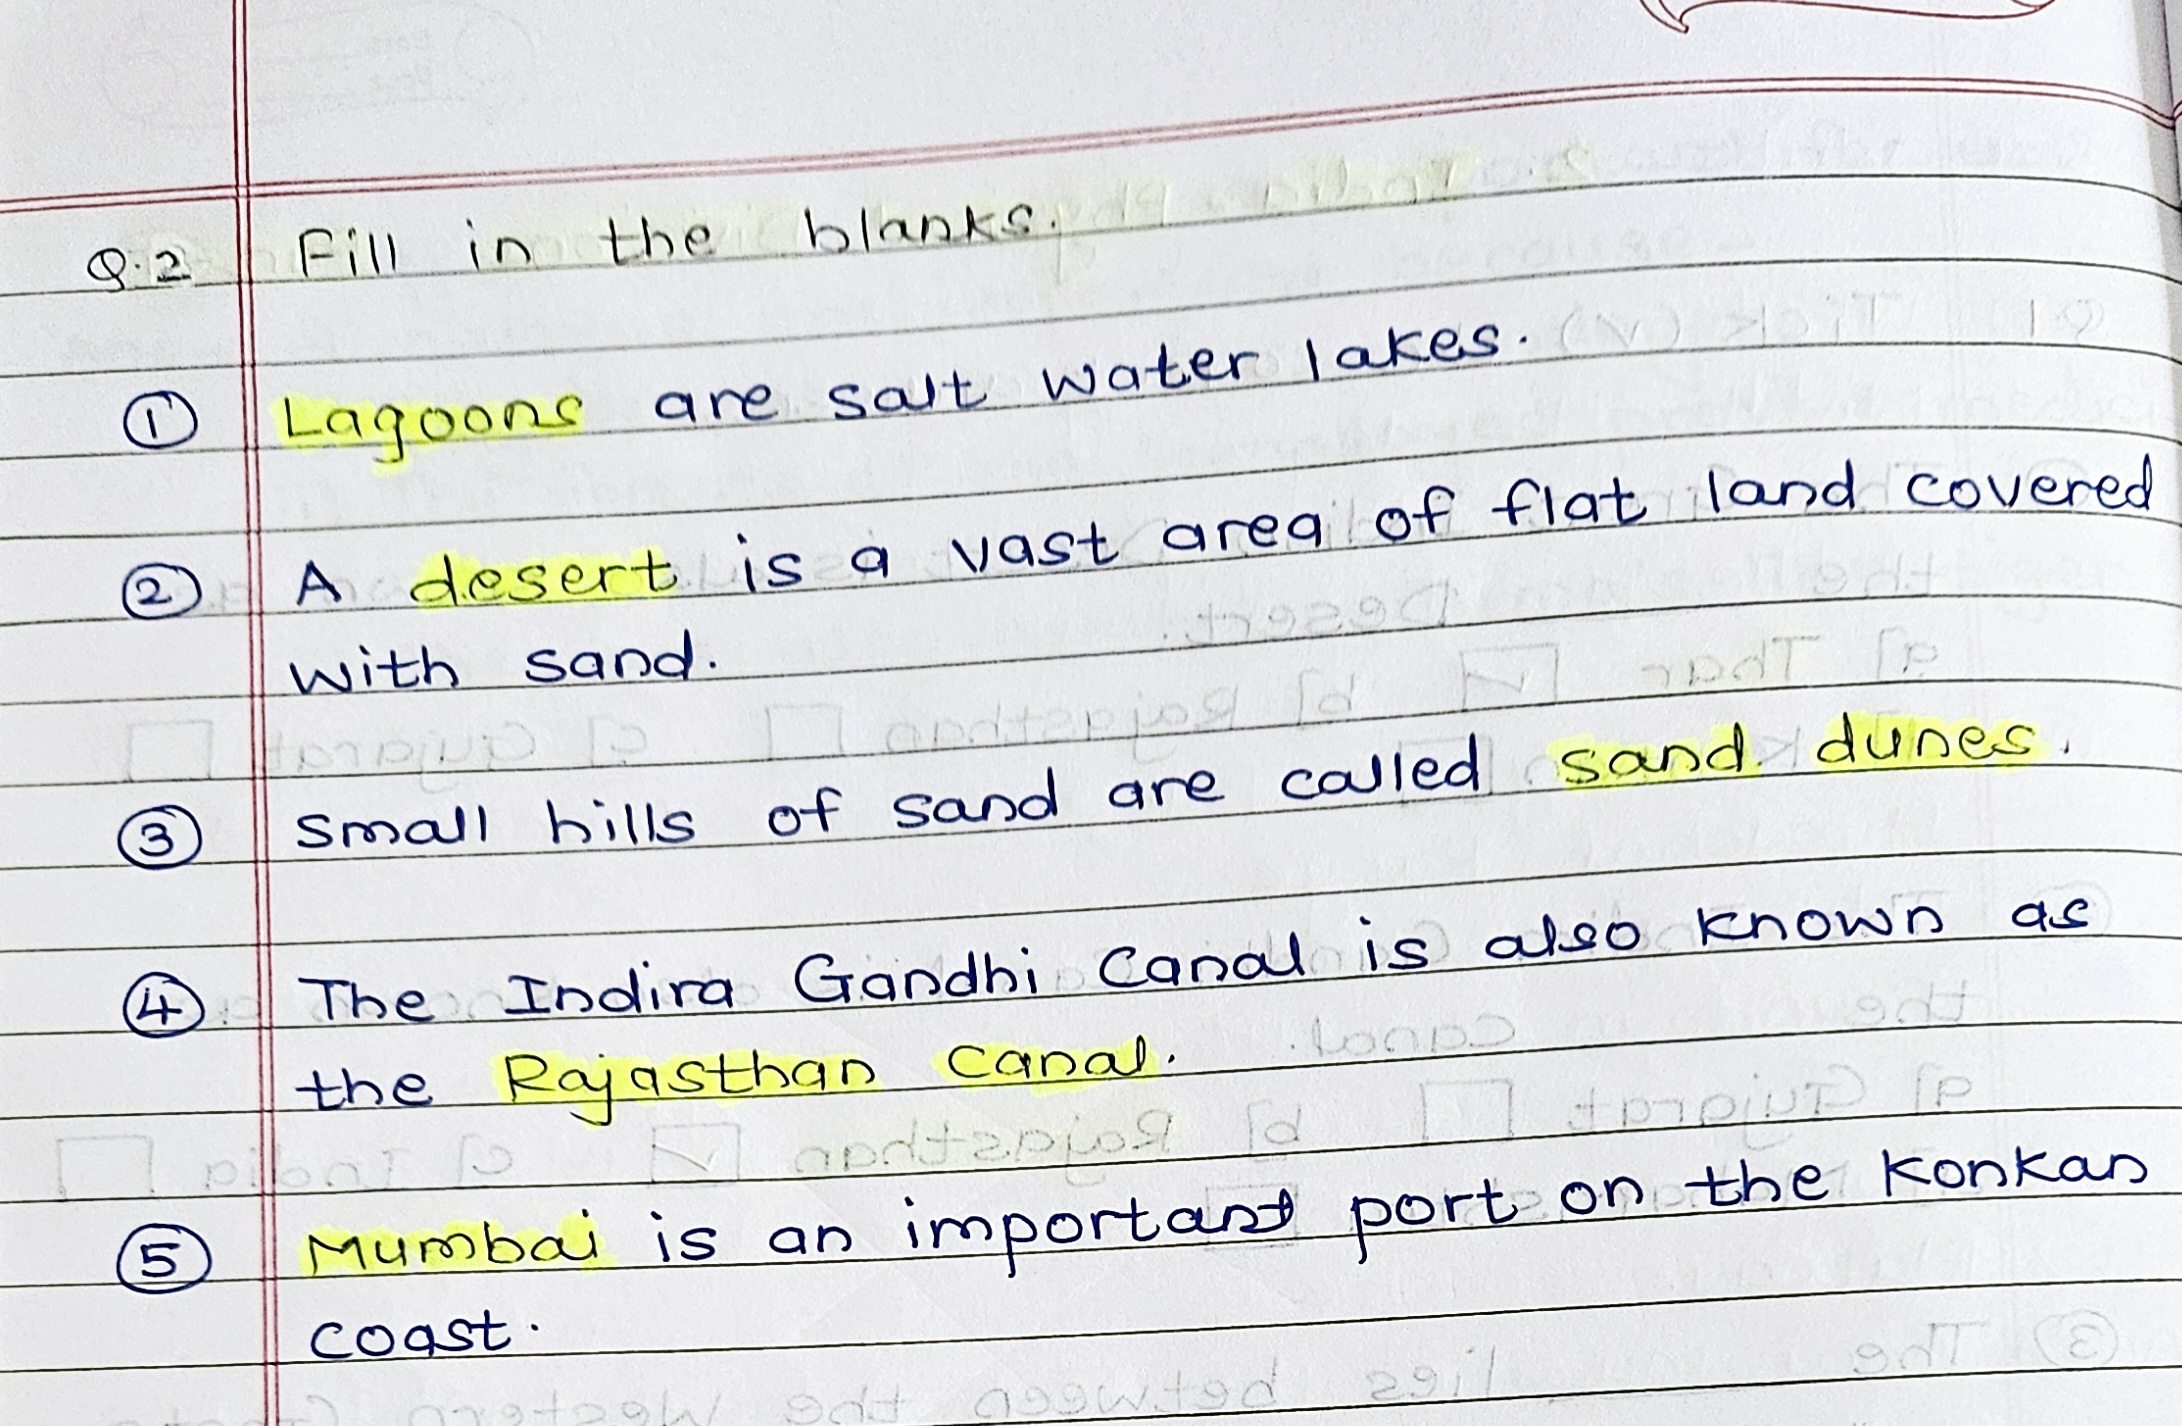 Q.2 Fill in the blanks.
① Lagoons are salt water lakes.
② A desert is a vast area of flat land covered
with sand.
③ Small hills of sand are called sand dunes.
④ The Indira Gandhi Canal is also known as
the Rajasthan Canal.
⑤ Mumbai is an important port on the Konkan
coast.